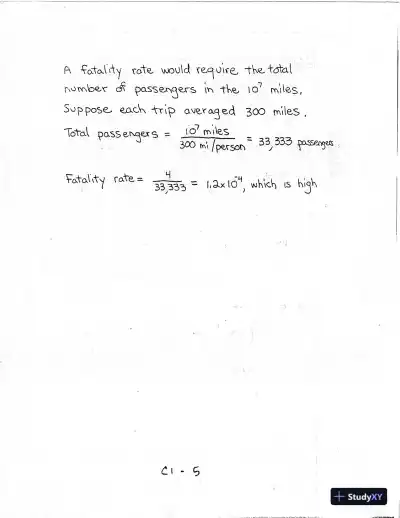 A fatality rate would require the total
number of passengers in the 10⁷ miles.
Suppose each trip averaged 300 miles.
Total passengers = 10⁷ miles / 300 mi/person = 33,333 passengers
Fatality rate = 4 / 33,333 = 1.2x10⁻⁴, which is high
C1 - 5
StudyXY